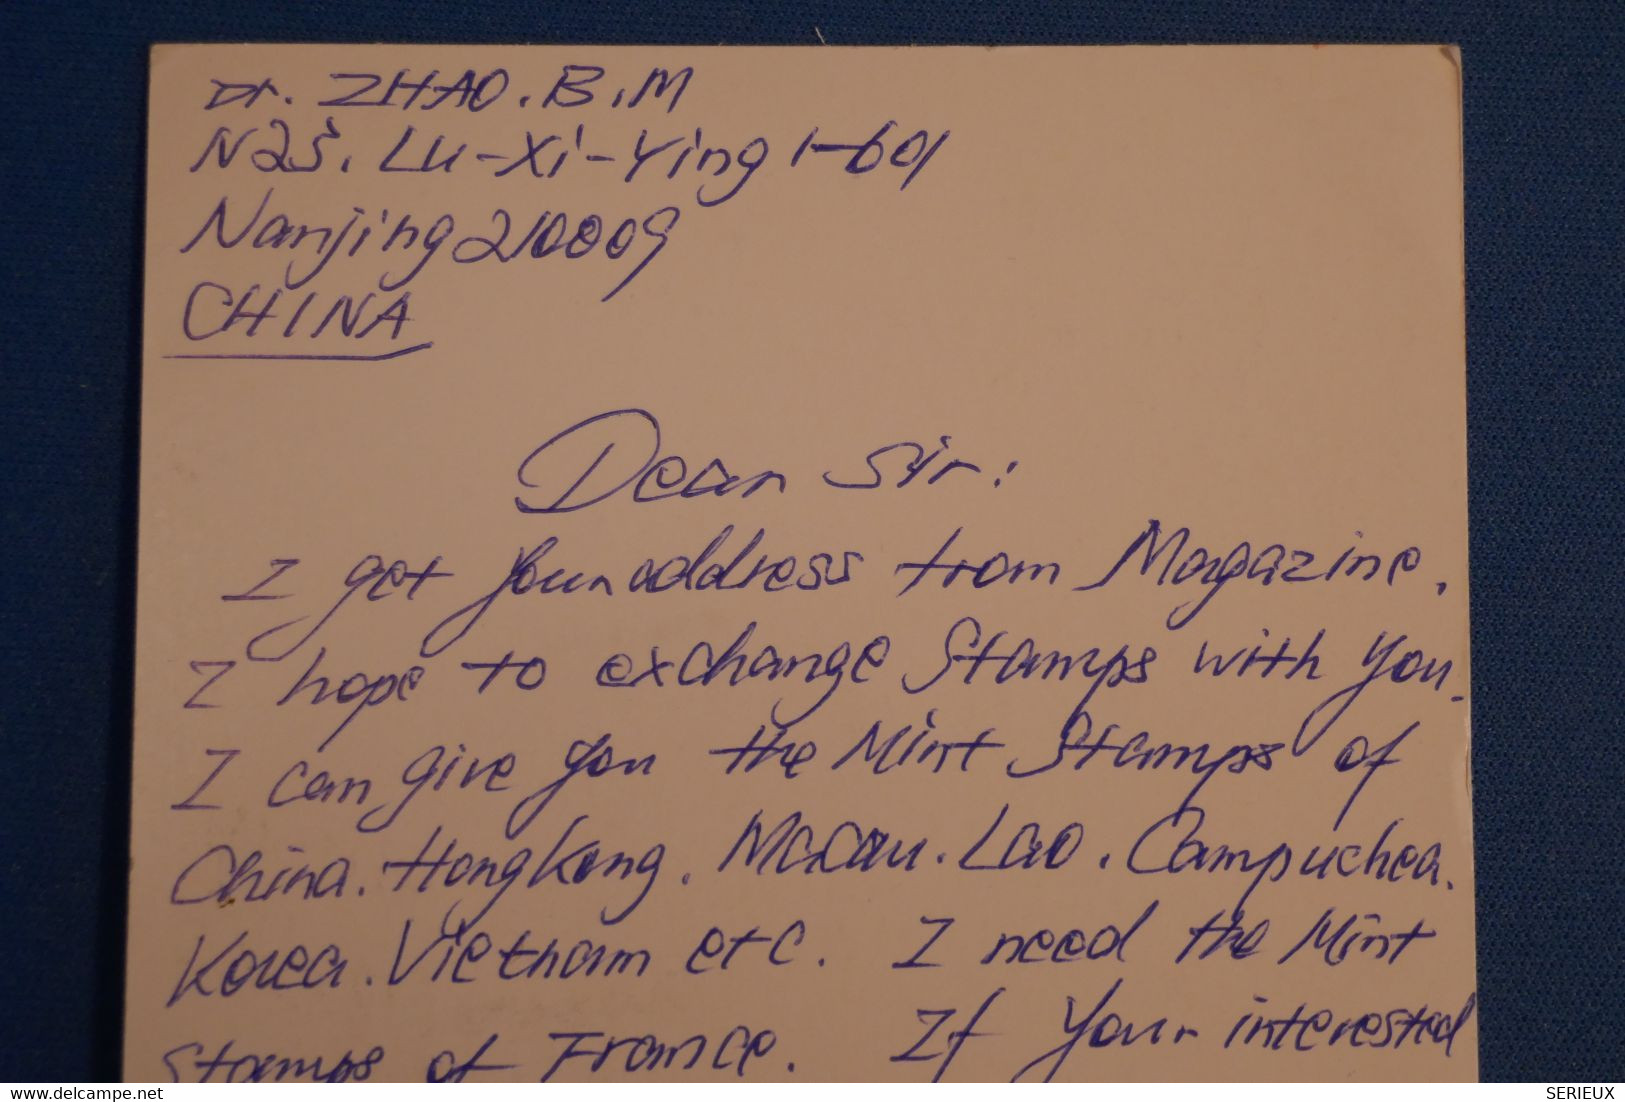 Dr. ZHAO. B.M
N23. Lu-Xi-Ying 1-601
Nanjing 210009
CHINA
Dear Sir:
I get your address from Magazine.
I hope to exchange Stamps with you.
I can give you the Mint Stamps of
China. HongKong. Macau. Lao. Campuchea.
Korea. Vietnam etc. I need the Mint
Stamps of France. If Your interested
delcampe.net
SERIEUX